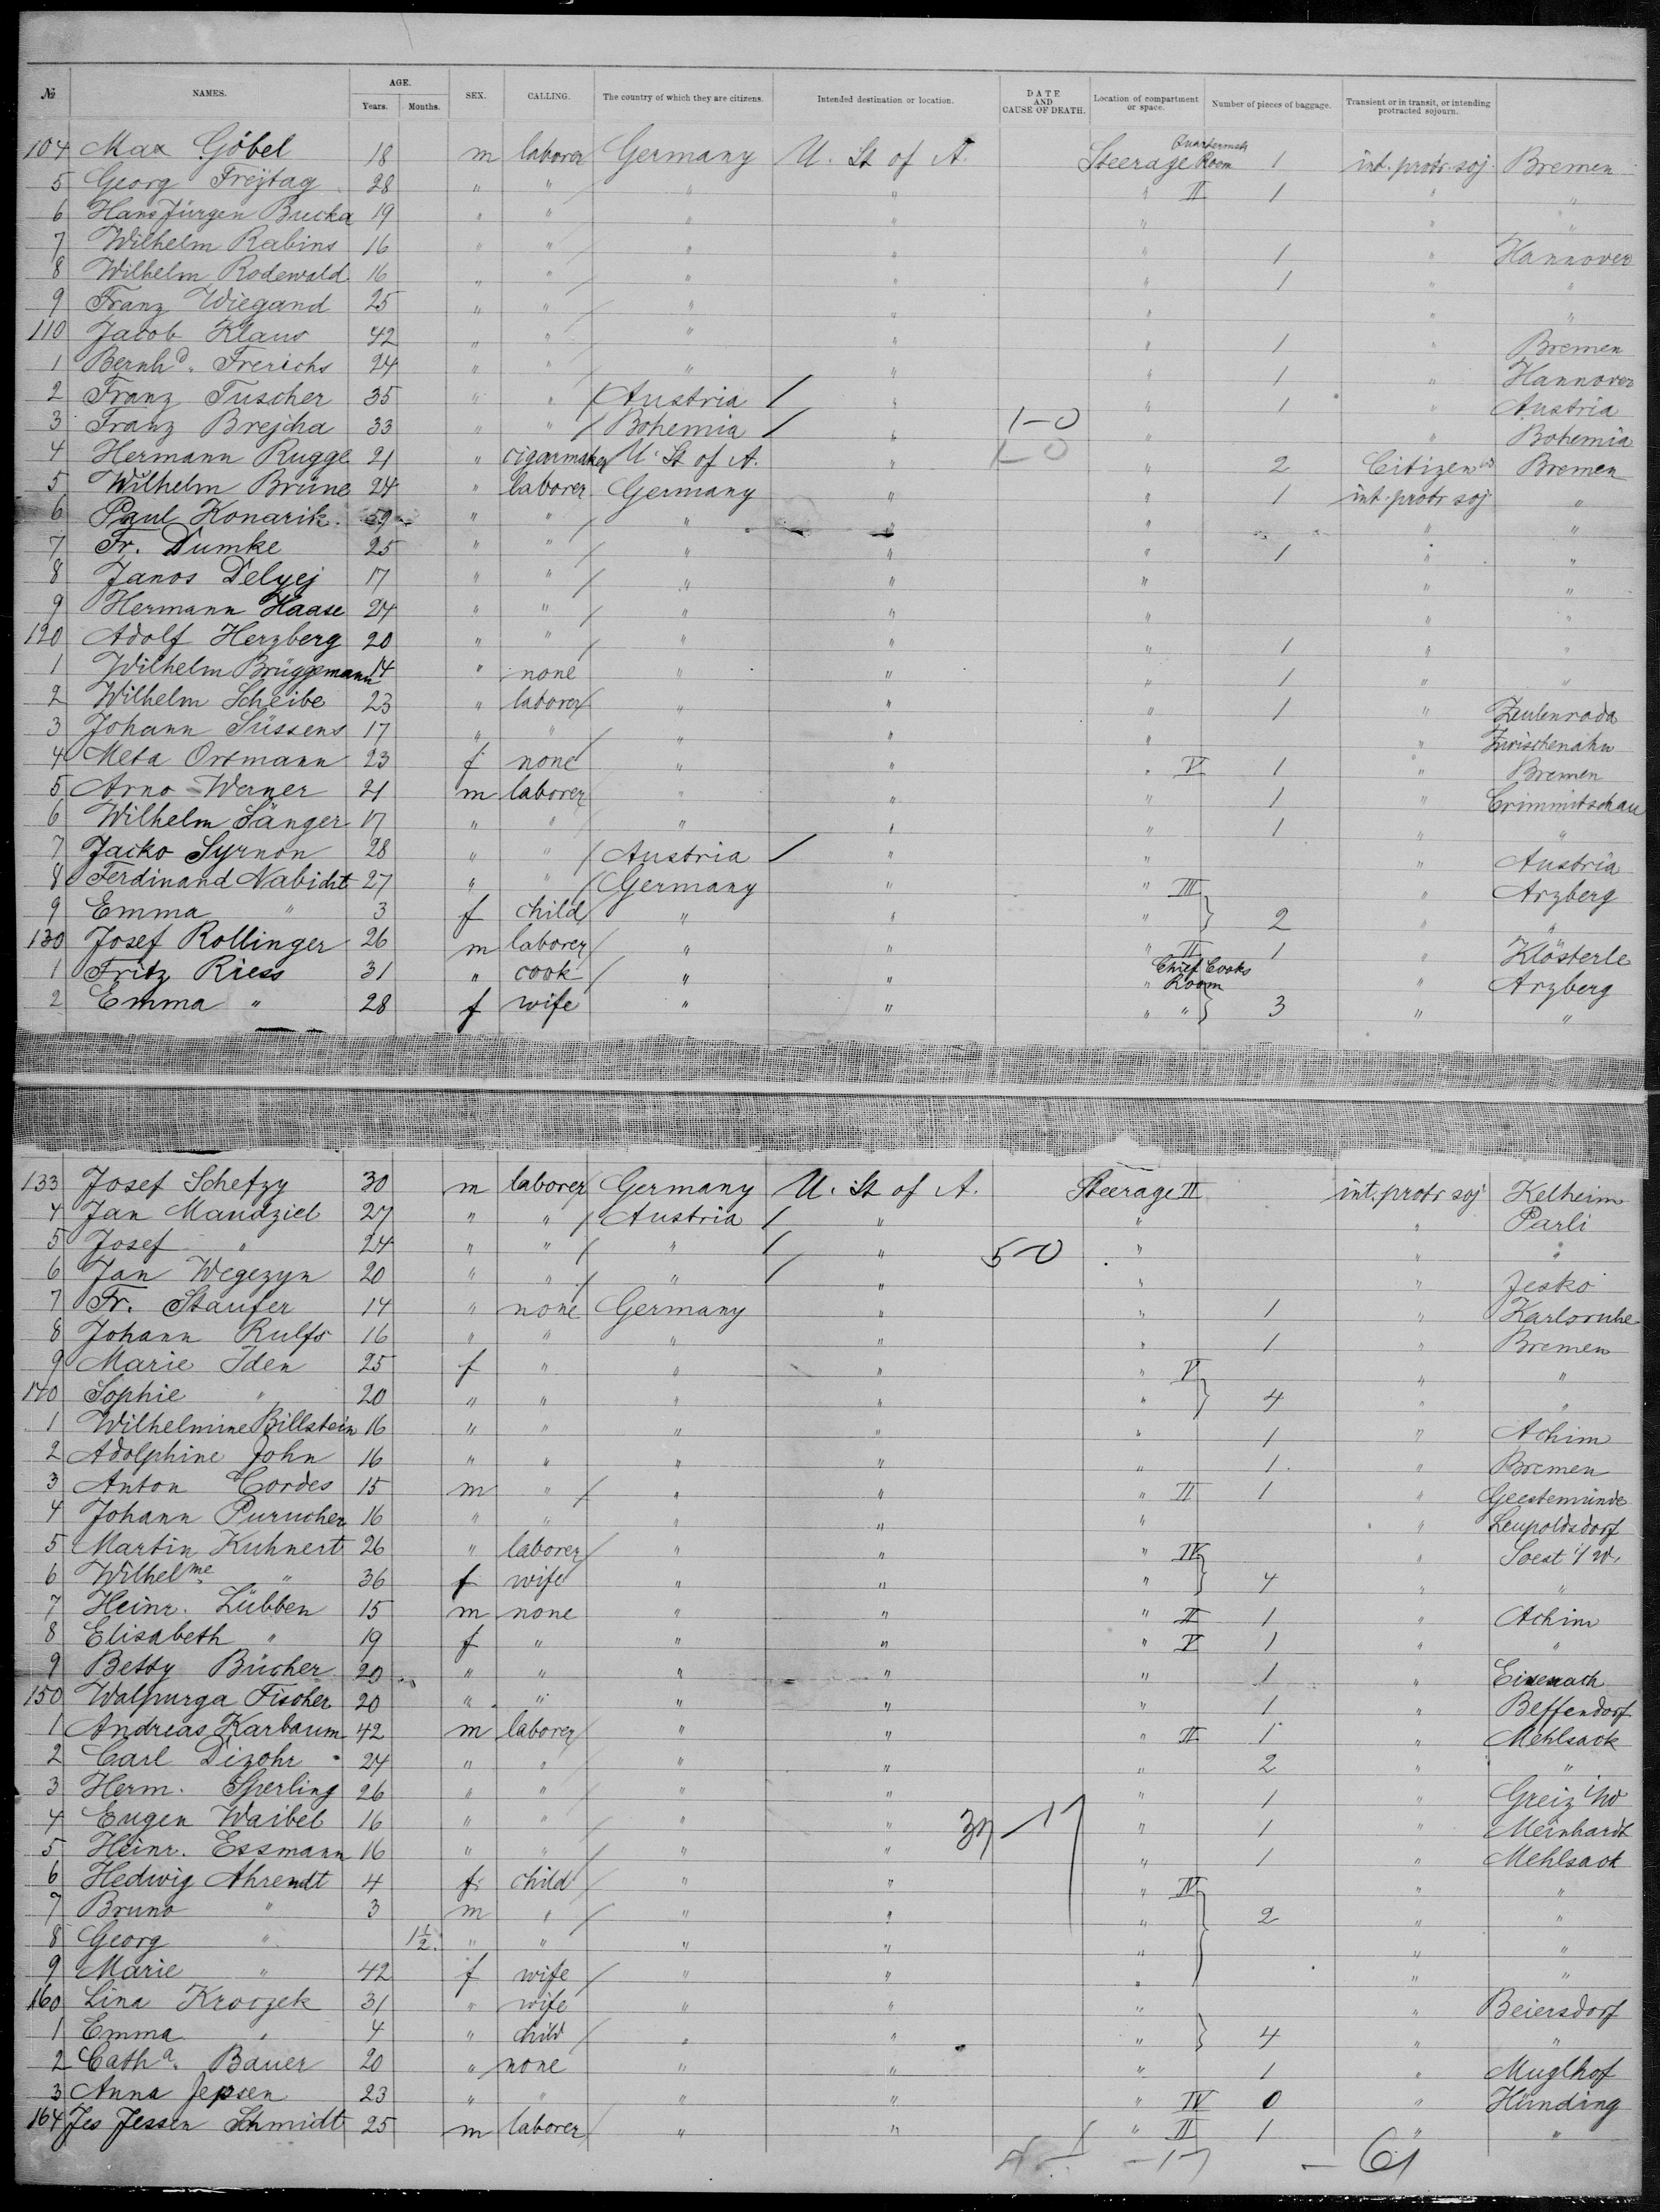 № NAMES. AGE. Years. Months. SEX. CALLING. The country of which they are citizens. Intended destination or location. DATE AND CAUSE OF DEATH. Location of compartment or space. Number of pieces of baggage. Transient or in transit, or intending protracted sojourn.
104 Max Göbel 18 m laborer Germany U. St of A. Steerage Quartermstr Room 1 int. protr. soj. Bremen
5 Georg Freytag 28 " " " " " II 1 " "
6 Hans Jürgen Bucka 19 " " " " " " "
7 Wilhelm Rabins 16 " " " " " 1 " Hannover
8 Wilhelm Rodewald 16 " " " " " 1 " "
9 Franz Wiegand 25 " " " " " " "
110 Jacob Klaus 42 " " " " " 1 " Bremen
1 Bernhd. Frerichs 24 " " " " " 1 " Hannover
2 Franz Tuscher 35 " " Austria " " 1 " Austria
3 Franz Brejcha 33 " " Bohemia " 1-0 " " Bohemia
4 Hermann Rugge 21 " cigarmaker U. St of A. " 1-0 " 2 Citizen Bremen
5 Wilhelm Brüne 24 " laborer Germany " " 1 int. protr soj "
6 Paul Konarik 59 " " " " " " "
7 Fr. Dumke 25 " " " " " 1 " "
8 Janos Delyej 17 " " " " " " "
9 Hermann Haase 24 " " " " " " "
120 Adolf Herzberg 20 " " " " " 1 " "
1 Wilhelm Brüggemann 14 " none " " " 1 " "
2 Wilhelm Scheibe 23 " laborer " " " 1 " Zeulenroda
3 Johann Süssens 17 " " " " " " Zwischenahn
4 Meta Ortmann 23 f none " " " V 1 " Bremen
5 Arno Werner 21 m laborer " " " 1 " Crimmitschau
6 Wilhelm Sänger 17 " " " " " 1 " "
7 Jacko Syrnon 28 " " Austria " " " Austria
8 Ferdinand Nabicht 27 " " Germany " " III " Arzberg
9 Emma " 3 f child " " " 2 " "
130 Josef Rollinger 26 m laborer " " " II 1 " Klösterle
1 Fritz Riess 31 " cook " " " Chief Cooks Room " Arzberg
2 Emma " 28 f wife " " " " 3 " "
133 Josef Schetzy 30 m laborer Germany U. St of A. Steerage II int. protr soj Kelheim
4 Jan Mandziel 27 " " Austria " " " Parli
5 Josef " 24 " " " " 5-0 " " "
6 Jan Wegezyn 20 " " " " " " Jesko
7 Fr. Staufer 14 " none Germany " " 1 " Karlsruhe
8 Johann Rulfs 16 " " " " " 1 " Bremen
9 Marie Iden 25 f " " " " V " "
140 Sophie " 20 " " " " " 4 " "
1 Wilhelmine Billstein 16 " " " " " 1 " Achim
2 Adolphine John 16 " " " " " 1 " Bremen
3 Anton Cordes 15 m " " " " II 1 " Geestemünde
4 Johann Purucher 16 " " " " " " Leupoldsdorf
5 Martin Kuhnert 26 " laborer " " " IV " Soest i/W.
6 Wilhelme " 36 f wife " " " 4 " "
7 Heinr. Lübben 15 m none " " " II 1 " Achim
8 Elisabeth " 19 f " " " " V 1 " "
9 Betty Bücher 20 " " " " " 1 " Eisenach
150 Walpurga Fischer 20 " " " " " 1 " Beffendorf
1 Andreas Karbaum 42 m laborer " " " II 1 " Mehlsack
2 Carl Dizohr 24 " " " " " 2 " "
3 Herm. Sperling 26 " " " " " 1 " Greiz
4 Eugen Waibel 16 " " " " 37-17 " 1 " Meinhardt
5 Heinr. Essmann 16 " " " " " 1 " Mehlsack
6 Hedwig Ahrendt 4 f child " " " IV " "
7 Bruno " 3 m " " " " 2 " "
8 Georg " 1½ " " " " " " "
9 Marie " 42 f wife " " " " "
160 Lina Kroczek 31 " wife " " " " Beiersdorf
1 Emma " 4 " child " " " 4 " "
2 Catha. Bauer 20 " none " " " 1 " Muglhof
3 Anna Jepsen 23 " " " " " IV 0 " Hünding
164 Jes Jessen Schmidt 25 m laborer " " " II 1 " "
-17 - 61